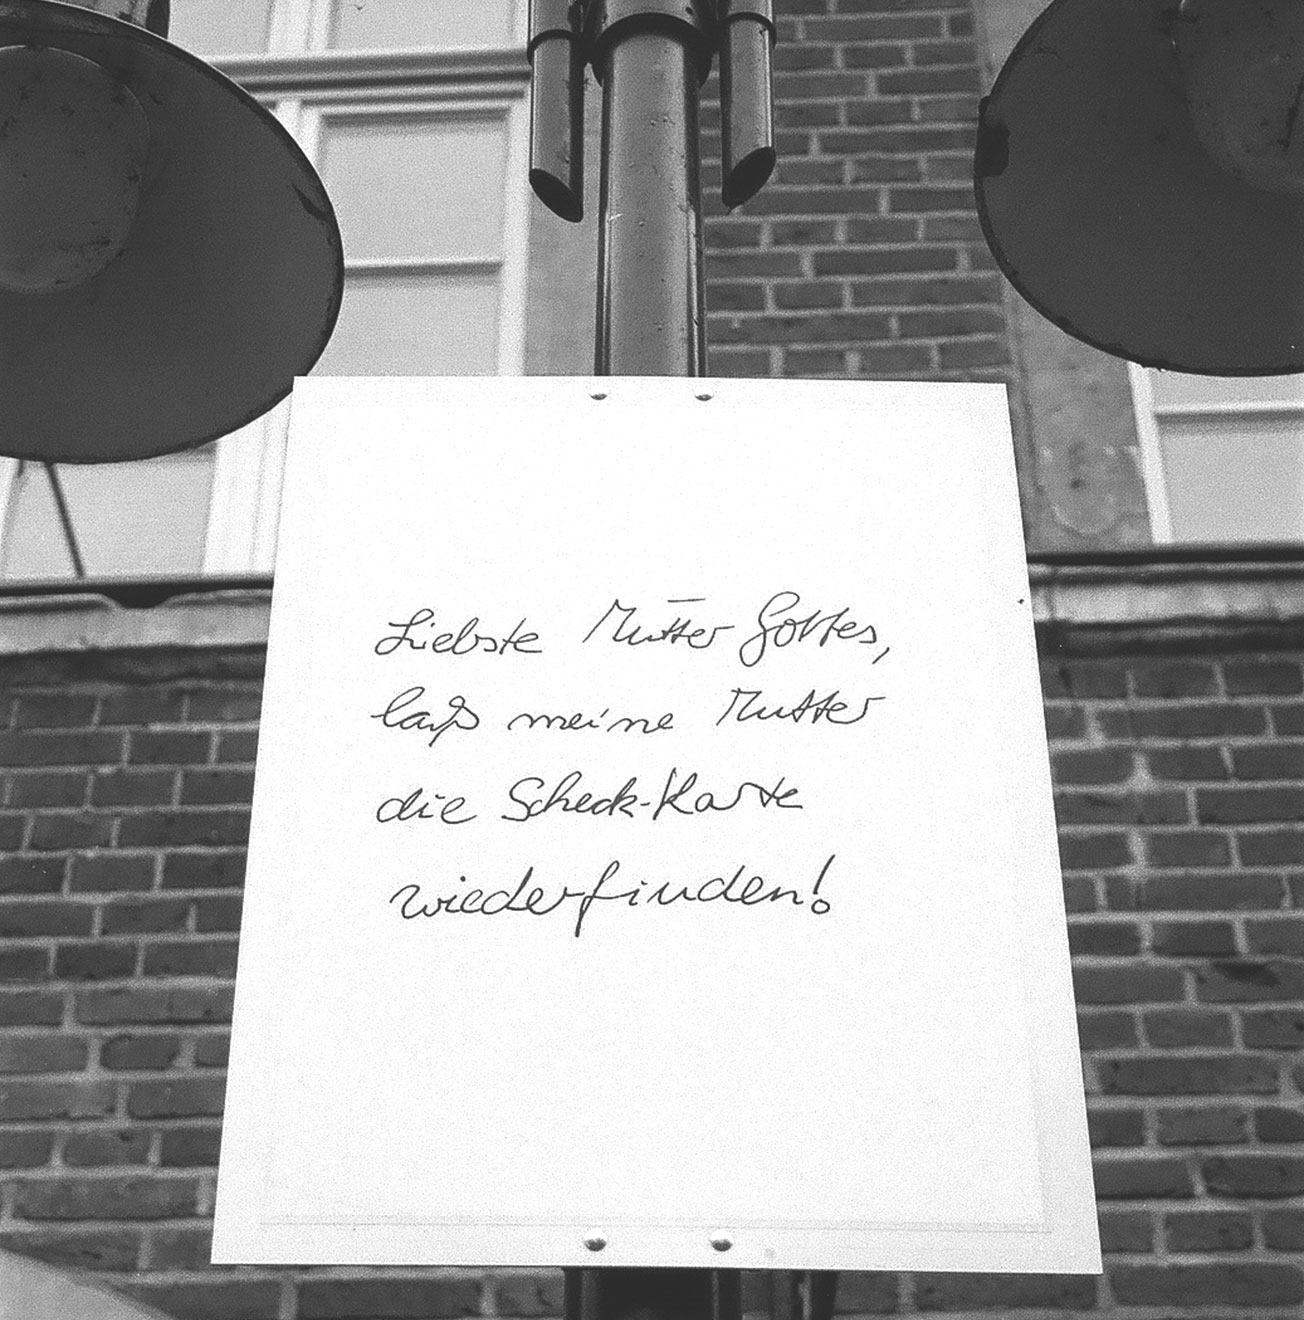 Liebste Mutter Gottes,
laß meine Mutter
die Scheck-Karte
wiederfinden!